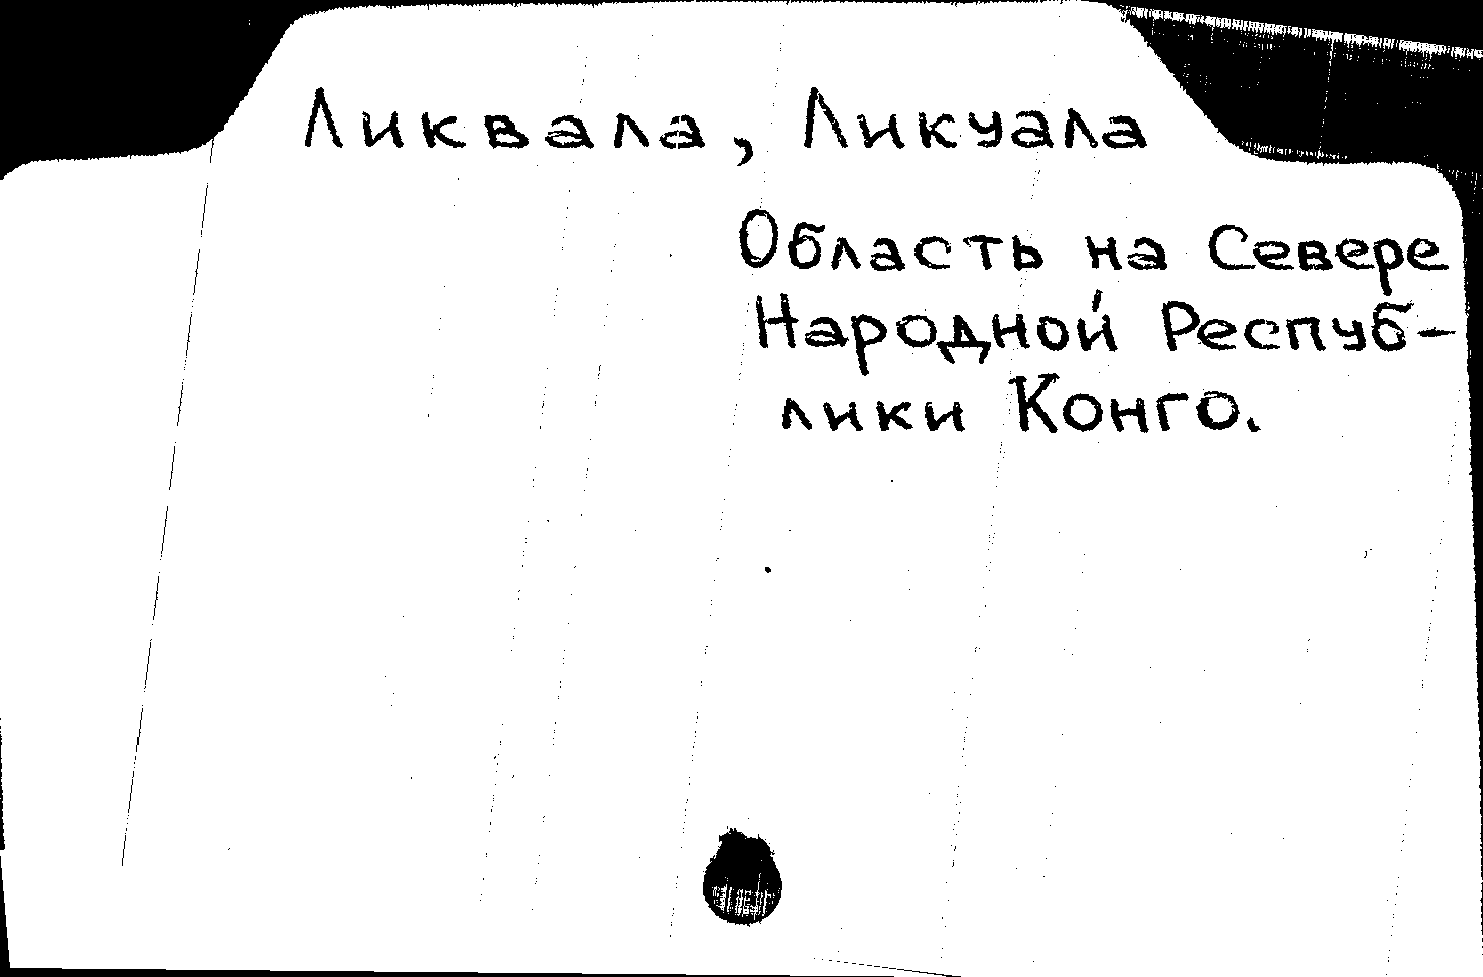 Ликвала, Ликуала
Область на Севере
Народной Респуб-
лики Конго.